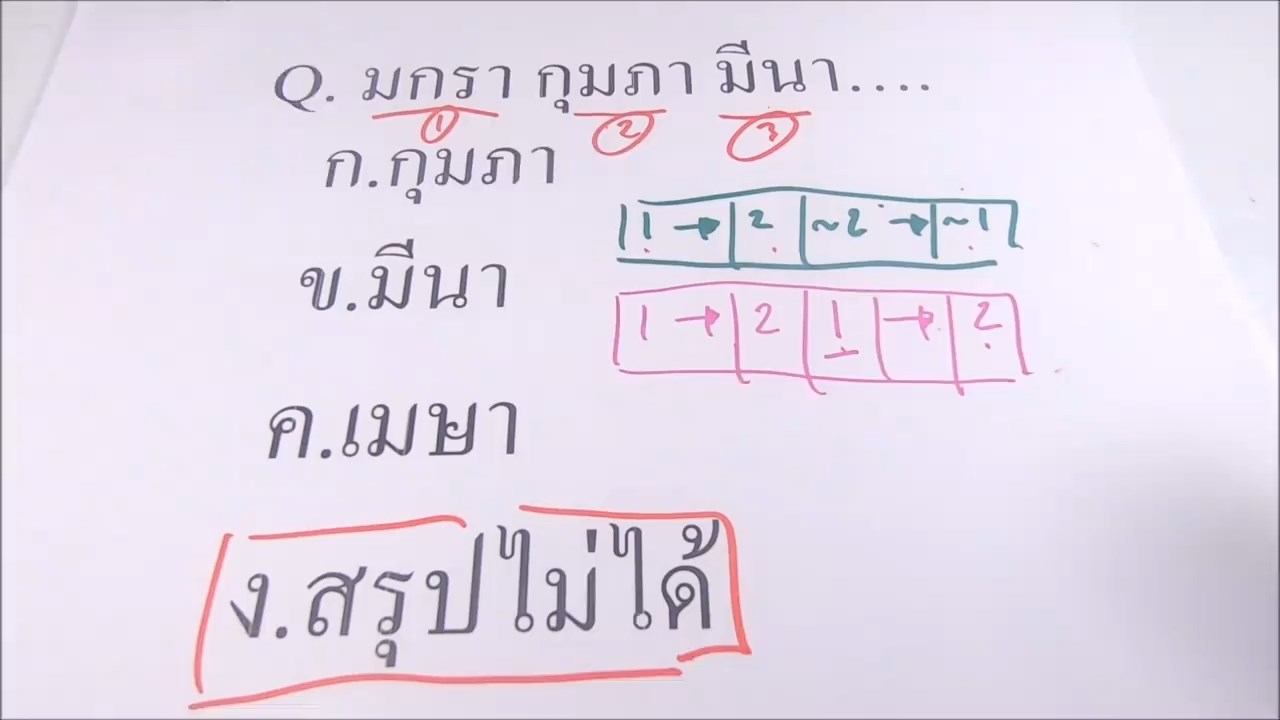 Q. มกรา กุมภา มีนา....
1 2 3
ก.กุมภา
1 → 2 ~2 → ~1
ข.มีนา
1 → 2 1 → 2
ค.เมษา
ง.สรุปไม่ได้